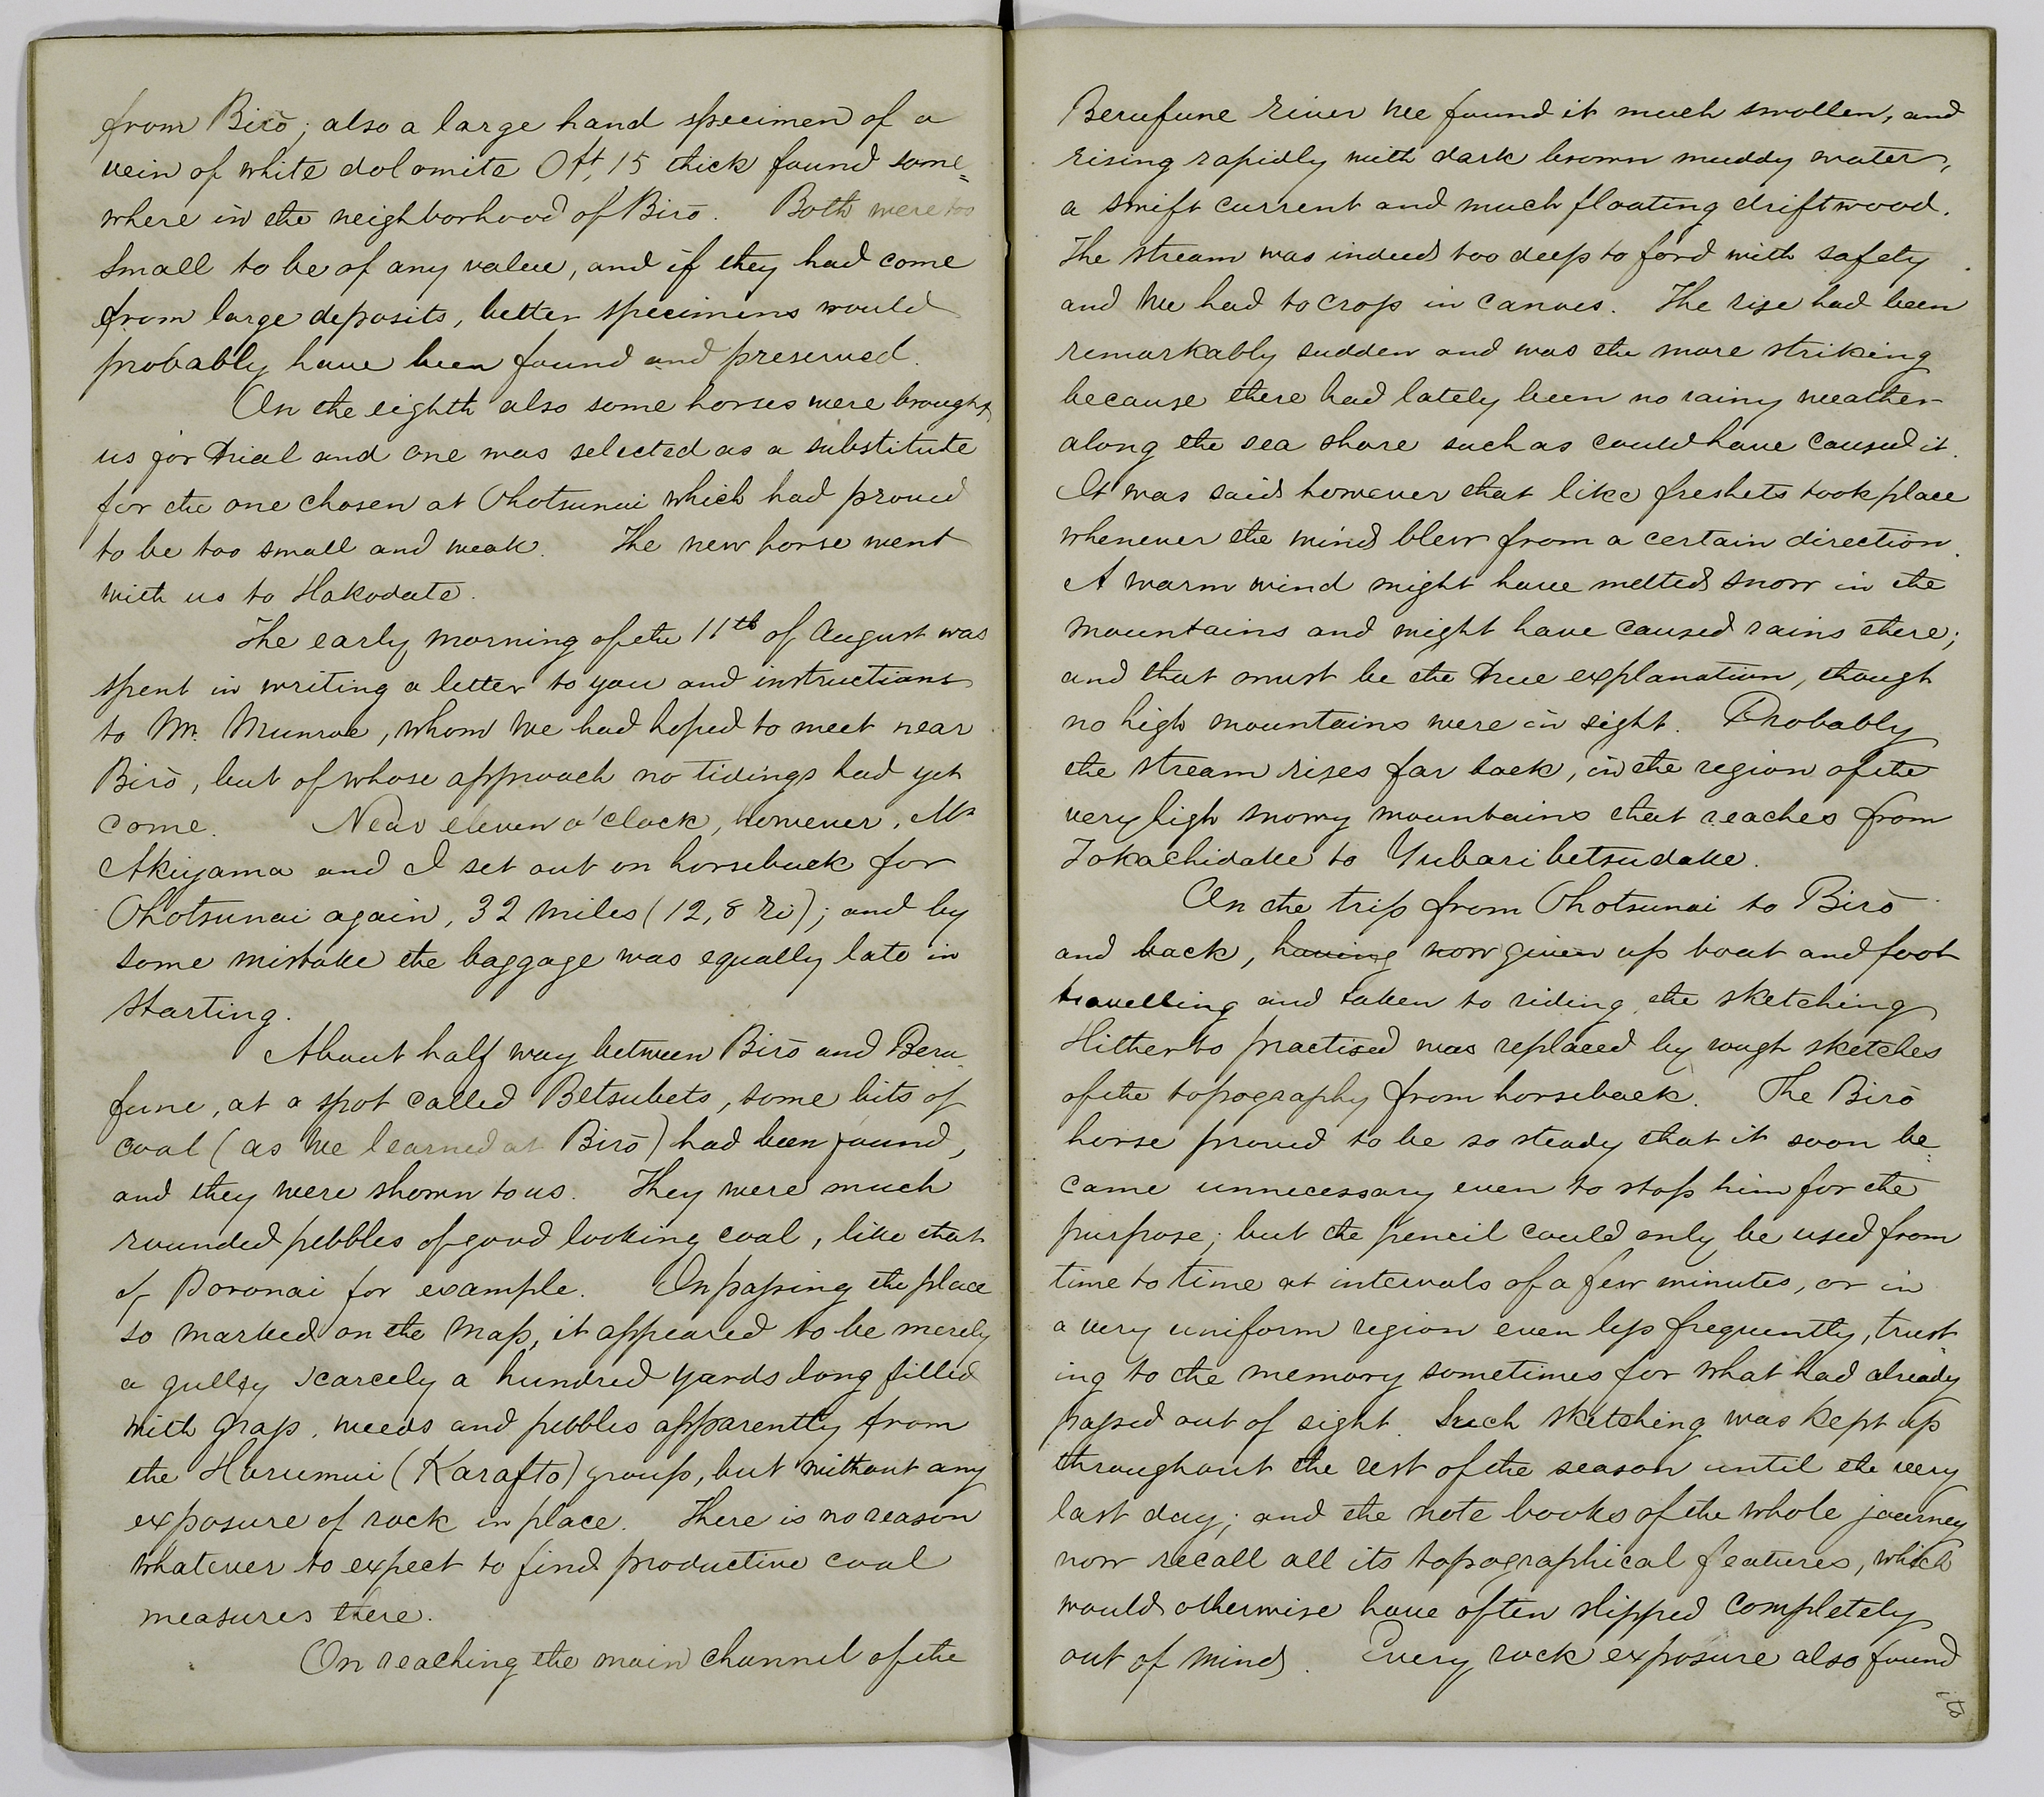 from Birō; also a large hand specimen of a
vein of white dolomite 0ft,15 thick found some=
where in the neighborhood of Birō. Both were too
small to be of any value, and if they had come
from large deposits, better specimens would
probably have been found and preserved.
On the eighth also some horses were brought
us for trial and one was selected as a substitute
for the one chosen at Ohotsunai which had proved
to be too small and weak. The new horse went
with us to Hakodate.
The early morning of the 11th of August was
spent in writing a letter to you and instructions
to Mr. Munroe, whom we had hoped to meet near
Birō, but of whose approach no tidings had yet
come. Near eleven o'clock, however, Mr
Akiyama and I set out on horseback for
Ohotsunai again, 32 miles (12,8 ri); and by
some mistake the baggage was equally late in
starting.
About half way between Birō and Beru
fune, at a spot called Betsubets, some bits of
coal (as we learned at Birō) had been found,
and they were shown to us. They were much
rounded pebbles of good looking coal, like that
of Poronai for example. On passing the place
so marked on the map, it appeared to be merely
a gulley scarcely a hundred yards long filled
with grass, weeds and pebbles apparently from
the Horumui (Karafto) group, but without any
exposure of rock in place. There is no reason
whatever to expect to find productive coal
measures there.
On reaching the main channel of the
Berufune river we found it much swollen, and
rising rapidly with dark brown muddy water,
a swift current and much floating driftwood.
The stream was indeed too deep to ford with safety
and we had to cross in canoes. The rise had been
remarkably sudden and was the more striking
because there had lately been no rainy weather
along the sea shore such as could have caused it.
It was said however that like freshets took place
whenever the wind blew from a certain direction.
A warm wind might have melted snow in the
mountains and might have caused rains there;
and that must be the true explanation, though
no high mountains were in sight. Probably
the stream rises far back, in the region of the
very high snowy mountains that reaches from
Tokachidake to Yubaribetsudake.
On the trip from Ohotsunai to Birō
and back, having now given up boat and foot
travelling and taken to riding, the sketching
Hitherto practised was replaced by rough sketches
of the topography from horseback. The Birō
horse proved to be so steady that it soon be=
came unnecessary even to stop him for the
purpose; but the pencil could only be used from
time to time at intervals of a few minutes, or in
a very uniform region even less frequently, trust
ing to the memory sometimes for what had already
passed out of sight. Such sketching was kept up
throughout the rest of the season until the very
last day; and the note books of the whole journey
now recall all its topographical features, which
would otherwise have often slipped completely
out of mind. Every rock exposure also found
its